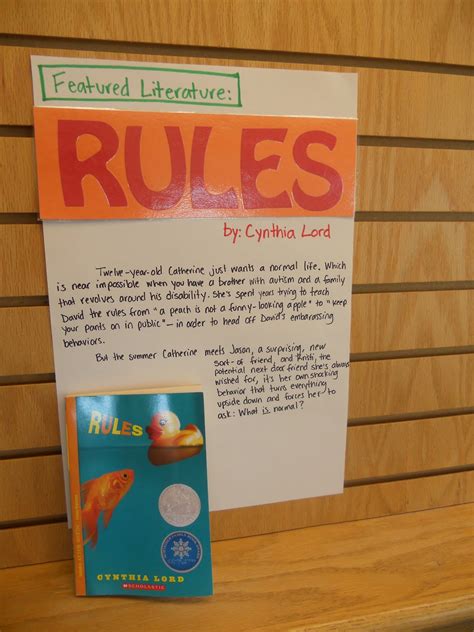 Featured Literature:
RULES
by: Cynthia Lord
Twelve-year-old Catherine just wants a normal life. Which
is near impossible when you have a brother with autism and a family
that revolves around his disability. She's spent years trying to teach
David the rules from "a peach is not a funny-looking apple" to "keep
your pants on in public" - in order to head off David's embarassing
behaviors.
But the summer Catherine meets Jason, a surprising, new
sort-of friend, and Kristi, the
potential next door friend she's always
wished for, it's her own shocking
behavior that turns everything
upside down and forces her to
ask: What is normal?
RULES
CYNTHIA LORD
SCHOLASTIC